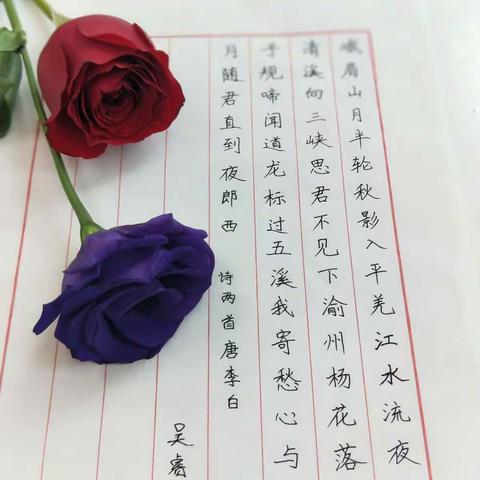 峨眉山月半轮秋影入平羌江水流夜
清溪向三峡思君不见下渝州杨花落
子规啼闻道龙标过五溪我寄愁心与
月随君直到夜郎西 诗两首唐李白
吴睿